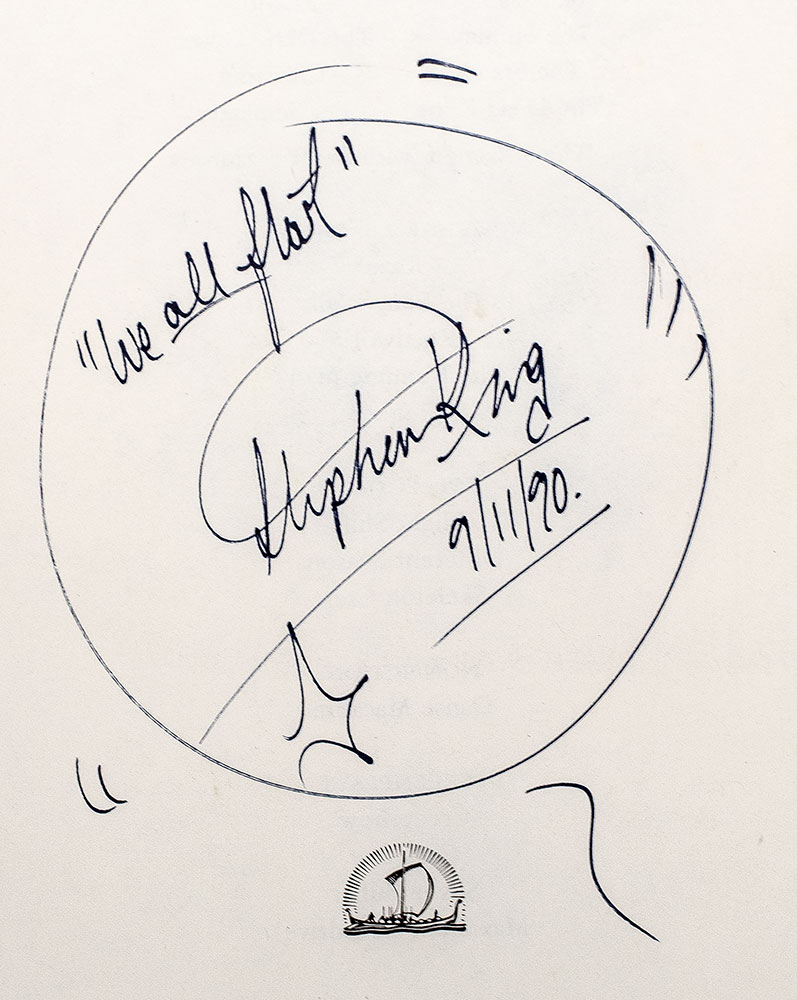 "We all float"
Stephen King
9/11/90.